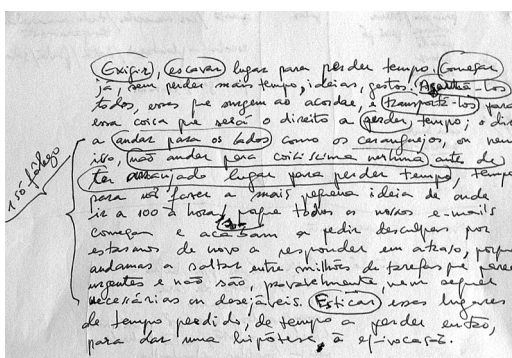 Exigir, escavar lugar para perder tempo. Começar
já, sem perder mais tempo, ideias, gestos. Agarrá-los
todos, esses que surgem ao acordar, e transportá-los para
essa coisa que será o direito a perder tempo; o dir
a andar para os lados como os caranguejos, ou nem
isso, não andar para coisíssima nenhuma antes de
ter arranjado lugar para perder tempo, tempo
para não fazer a mais pequena ideia de onde
ir a 100 à hora, porque todos os nossos e-mails
começam e acabam a pedir desculpas por
estarmos de novo a responder em atraso, porque
andamos a saltar entre milhões de tarefas que parec
urgentes e não são, provavelmente, nem sequer
necessárias ou desejáveis. Esticar esses lugares
de tempo perdido, de tempo a perder então,
para dar uma hipótese à equivocação.
1 só fôlego